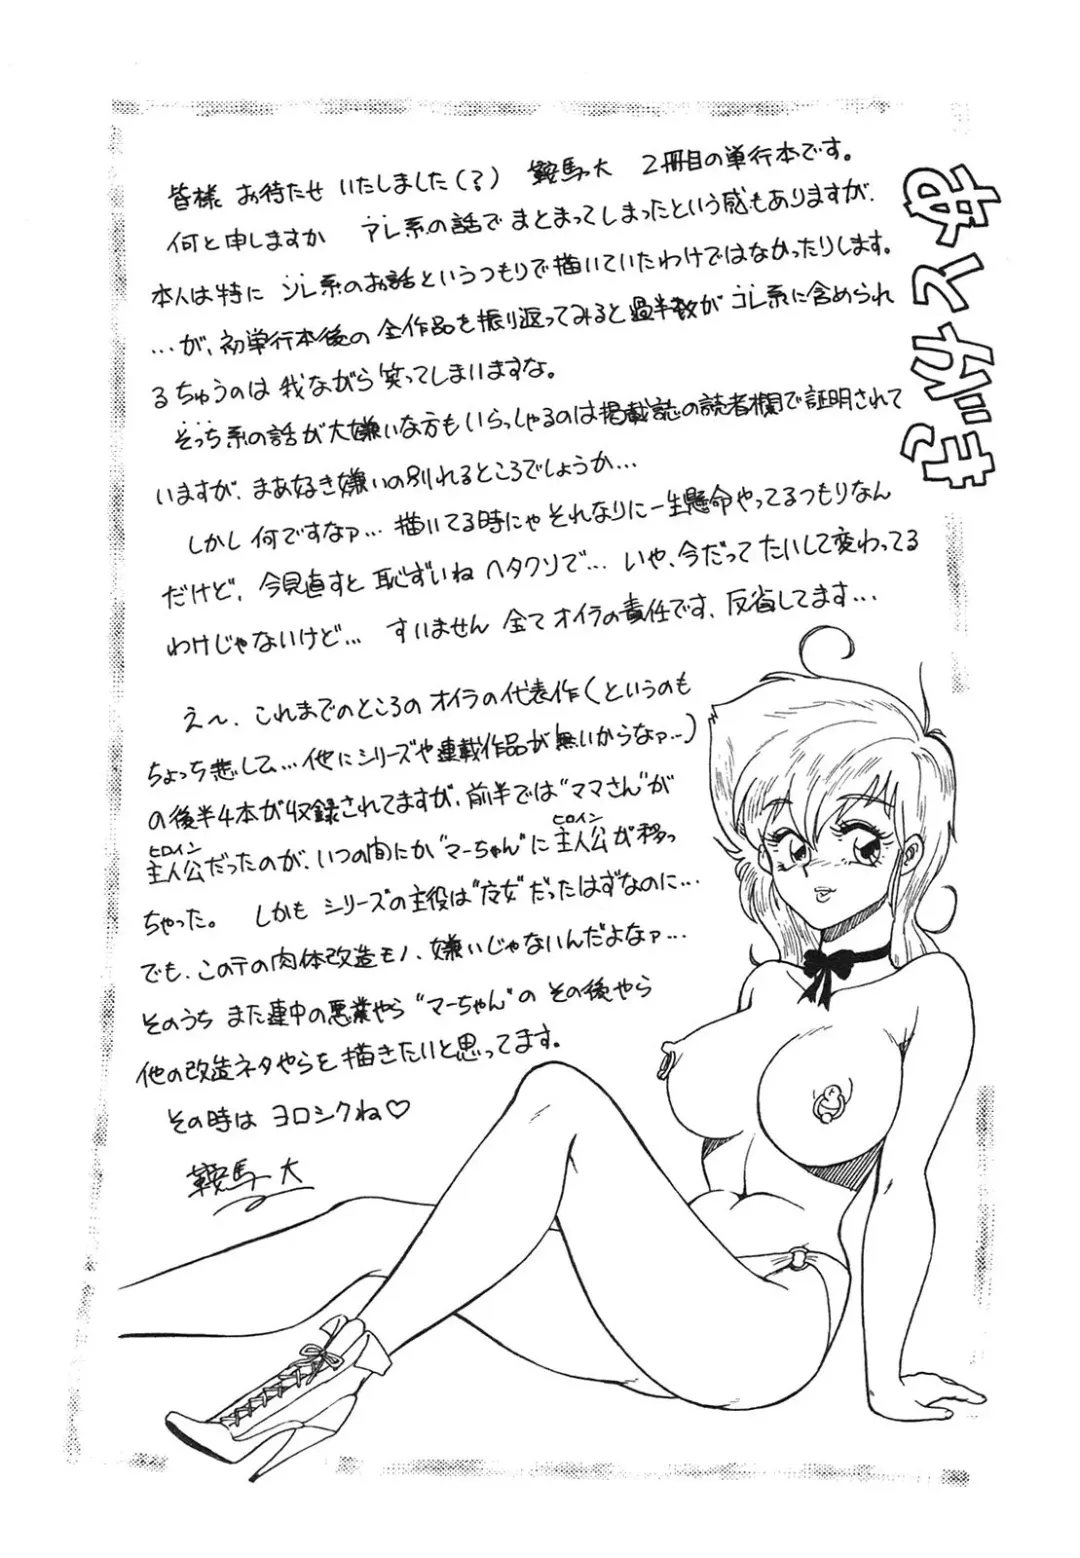 あとがき
皆様 お待たせ いたしました(?) 鞍馬大 2冊目の単行本です。
何と申しますか アレ系の話で まとまってしまったという感もありますが、
本人は特に ソレ系のお話というつもりで描いていたわけではなかったりします。
…が、初単行本後の 全作品を振り返ってみると過半数が コレ系に含められ
るちゅうのは 我ながら笑ってしまいますな。
そっち系の話が大嫌いな方もいらっしゃるのは掲載誌の読者欄で証明されて
いますが、まあ好き嫌いの別れるところでしょうか…
しかし 何ですなァ… 描いてる時にゃ それなりに一生懸命やってるつもりなん
だけど、今見直すと 恥ずいね ヘタクソで… いや、今だって たいして変わってる
わけじゃないけど… すいません 全て オイラの責任です、反省してます…
え〜、これまでのところの オイラの代表作(というのも
ちょっち悲しい…他にシリーズや連載作品が無いからなァ…)
の後半4本が収録されてますが、前半では“ママさん”が
主人公(ヒロイン)だったのが、いつの間にか“マーちゃん”に 主人公(ヒロイン)が移っ
ちゃった。 しかも シリーズの主役は だったはずなのに…
でも、このテの肉体改造モノ、嫌いじゃないんだよなァ…
そのうち また連中の悪業やら “マーちゃん”の その後やら
他の改造ネタやらを 描きたいと思ってます。
その時は ヨロシクね♡
鞍馬 大